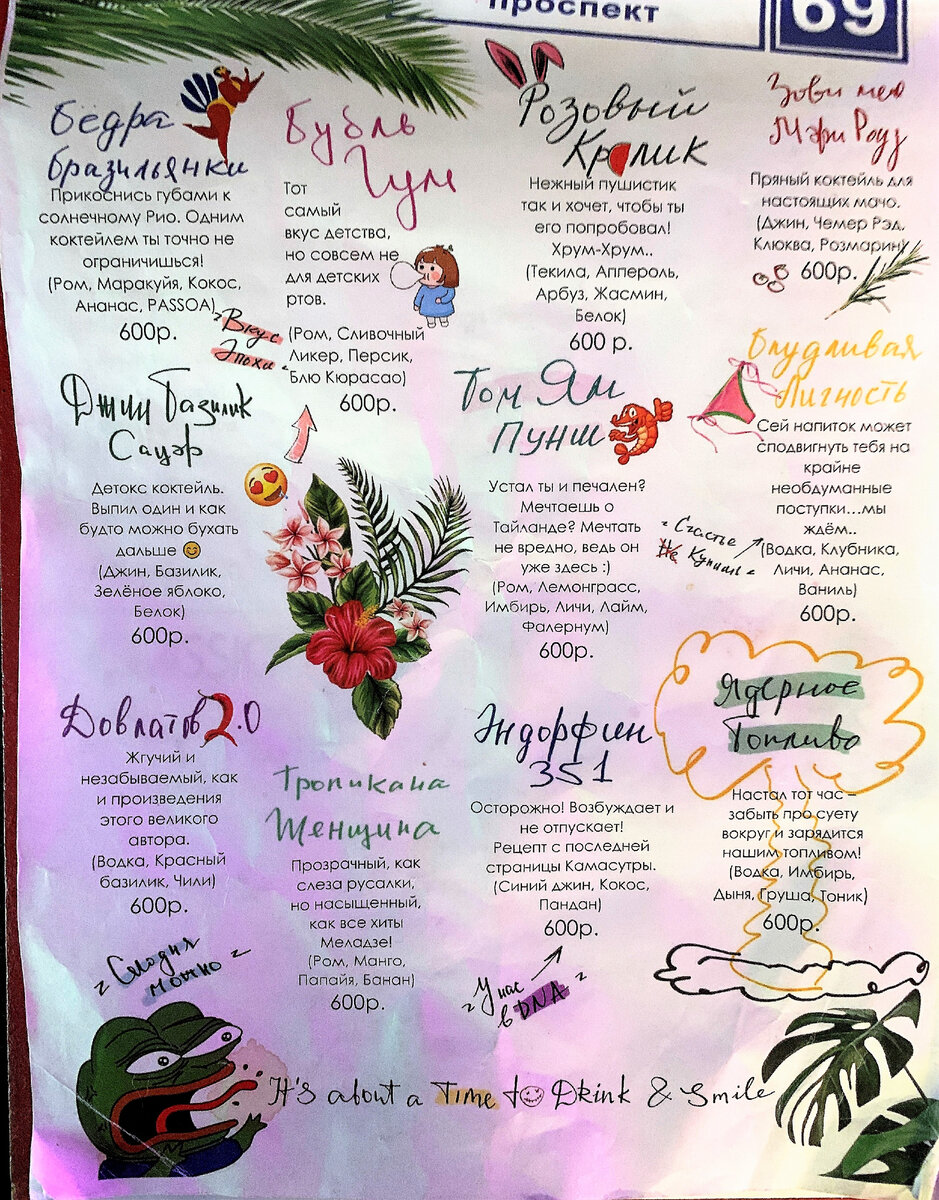 проспект
69
Бёдра
бразильянки
Прикоснись губами к
солнечному Рио. Одним
коктейлем ты точно не
ограничишься!
(Ром, Маракуйя, Кокос,
Ананас, PASSOA)
600р.
Бубль
Гум
Тот
самый
вкус детства,
но совсем не
для детских
ртов.
(Ром, Сливочный
Ликер, Персик,
Блю Кюрасао)
600р.
"Вкус
Эпохи"
Розовый
Кролик
Нежный пушистик
так и хочет, чтобы ты
его попробовал!
Хрум-Хрум..
(Текила, Аппероль,
Арбуз, Жасмин,
Белок)
600 р.
Зови меня
Мэри Роуз
Пряный коктейль для
настоящих мачо.
(Джин, Чемер Рэд,
Клюква, Розмарин)
600р.
Джин Базилик
Сауэр
Детокс коктейль.
Выпил один и как
будто можно бухать
дальше 😊
(Джин, Базилик,
Зелёное яблоко,
Белок)
600р.
Том Ям
Пунш
Устал ты и печален?
Мечтаешь о
Тайланде? Мечтать
не вредно, ведь он
уже здесь :)
(Ром, Лемонграсс,
Имбирь, Личи, Лайм,
Фалернум)
600р.
Блудливая
Личность
Сей напиток может
сподвигнуть тебя на
крайне
необдуманные
поступки...мы
ждём..
(Водка, Клубника,
Личи, Ананас,
Ваниль)
600р.
"Счастье
Не купишь"
Довлатов 2.0
Жгучий и
незабываемый, как
и произведения
этого великого
автора.
(Водка, Красный
базилик, Чили)
600р.
Тропикана
Женщина
Прозрачный, как
слеза русалки,
но насыщенный,
как все хиты
Меладзе!
(Ром, Манго,
Папайя, Банан)
600р.
Эндорфин
351
Осторожно! Возбуждает и
не отпускает!
Рецепт с последней
страницы Камасутры.
(Синий джин, Кокос,
Пандан)
600р.
"У нас
в DNA"
Ядерное
Топливо
Настал тот час –
забыть про суету
вокруг и зарядится
нашим топливом!
(Водка, Имбирь,
Дыня, Груша, Тоник)
600р.
"Сегодня
можно"
It's about a Time to Drink & Smile